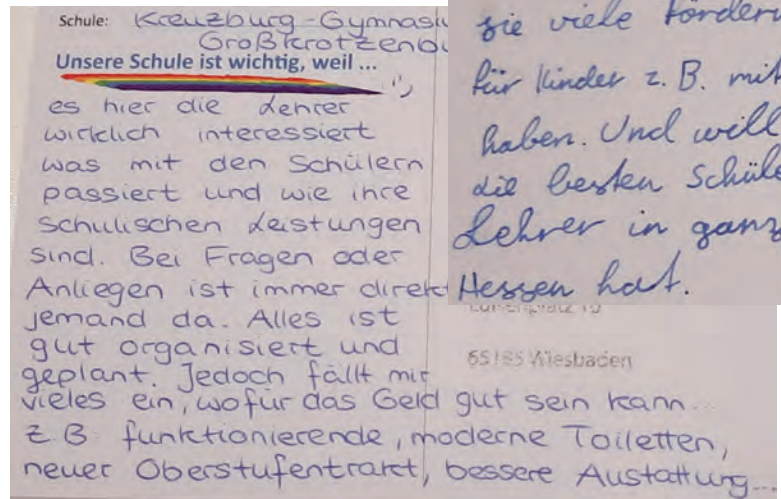 Schule: Kreuzburg-Gymnasiu
Großkrotzenbu
Unsere Schule ist wichtig, weil ...
es hier die Lehrer
wirklich interessiert
was mit den Schülern
passiert und wie ihre
schulischen Leistungen
sind. Bei Fragen oder
Anliegen ist immer direkt
jemand da. Alles ist
gut organisiert und
geplant. Jedoch fällt mir
vieles ein, wofür das Geld gut sein kann...
z.B. funktionierende, moderne Toiletten,
neuer Oberstufentrakt, bessere Austattung...
sie viele Fördern
für Kinder z. B. mit
haben. Und will
die besten Schüle
Lehrer in ganz
Hessen hat.
65185 Wiesbaden